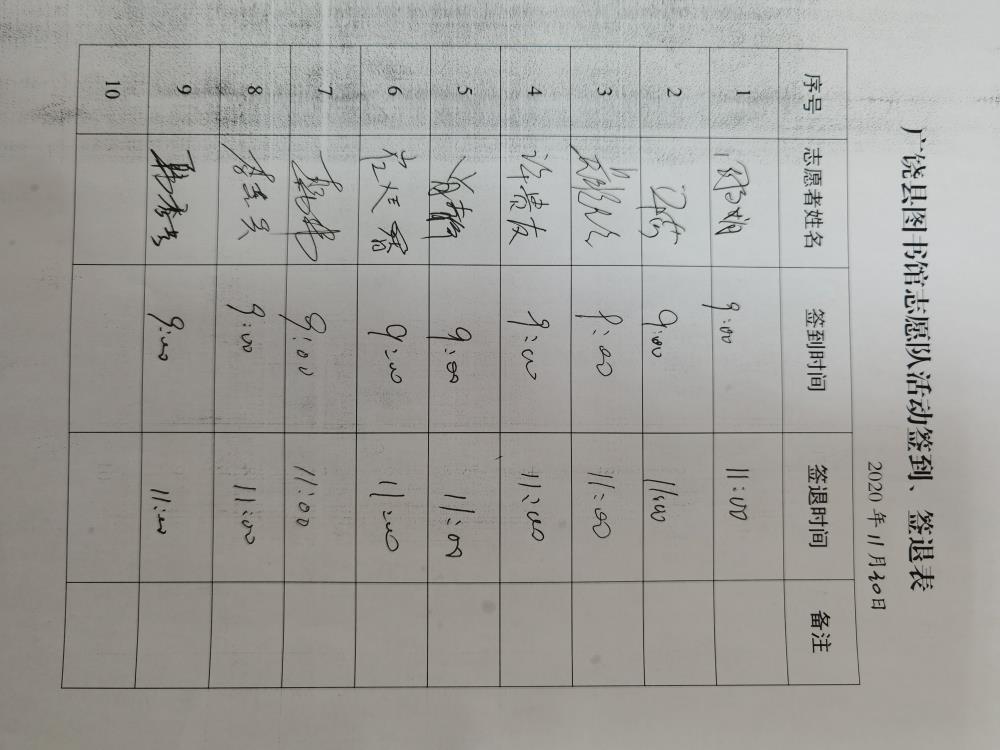 广饶县图书馆志愿队活动签到、签退表
2020年11月30日
序号 志愿者姓名 签到时间 签退时间 备注
1 9:00 11:00
2 9:00 11:00
3 9:00 11:00
4 许贵友 9:00 11:00
5 9:00 11:00
6 9:00 11:00
7 9:00 11:00
8 9:00 11:00
9 9:00 11:00
10